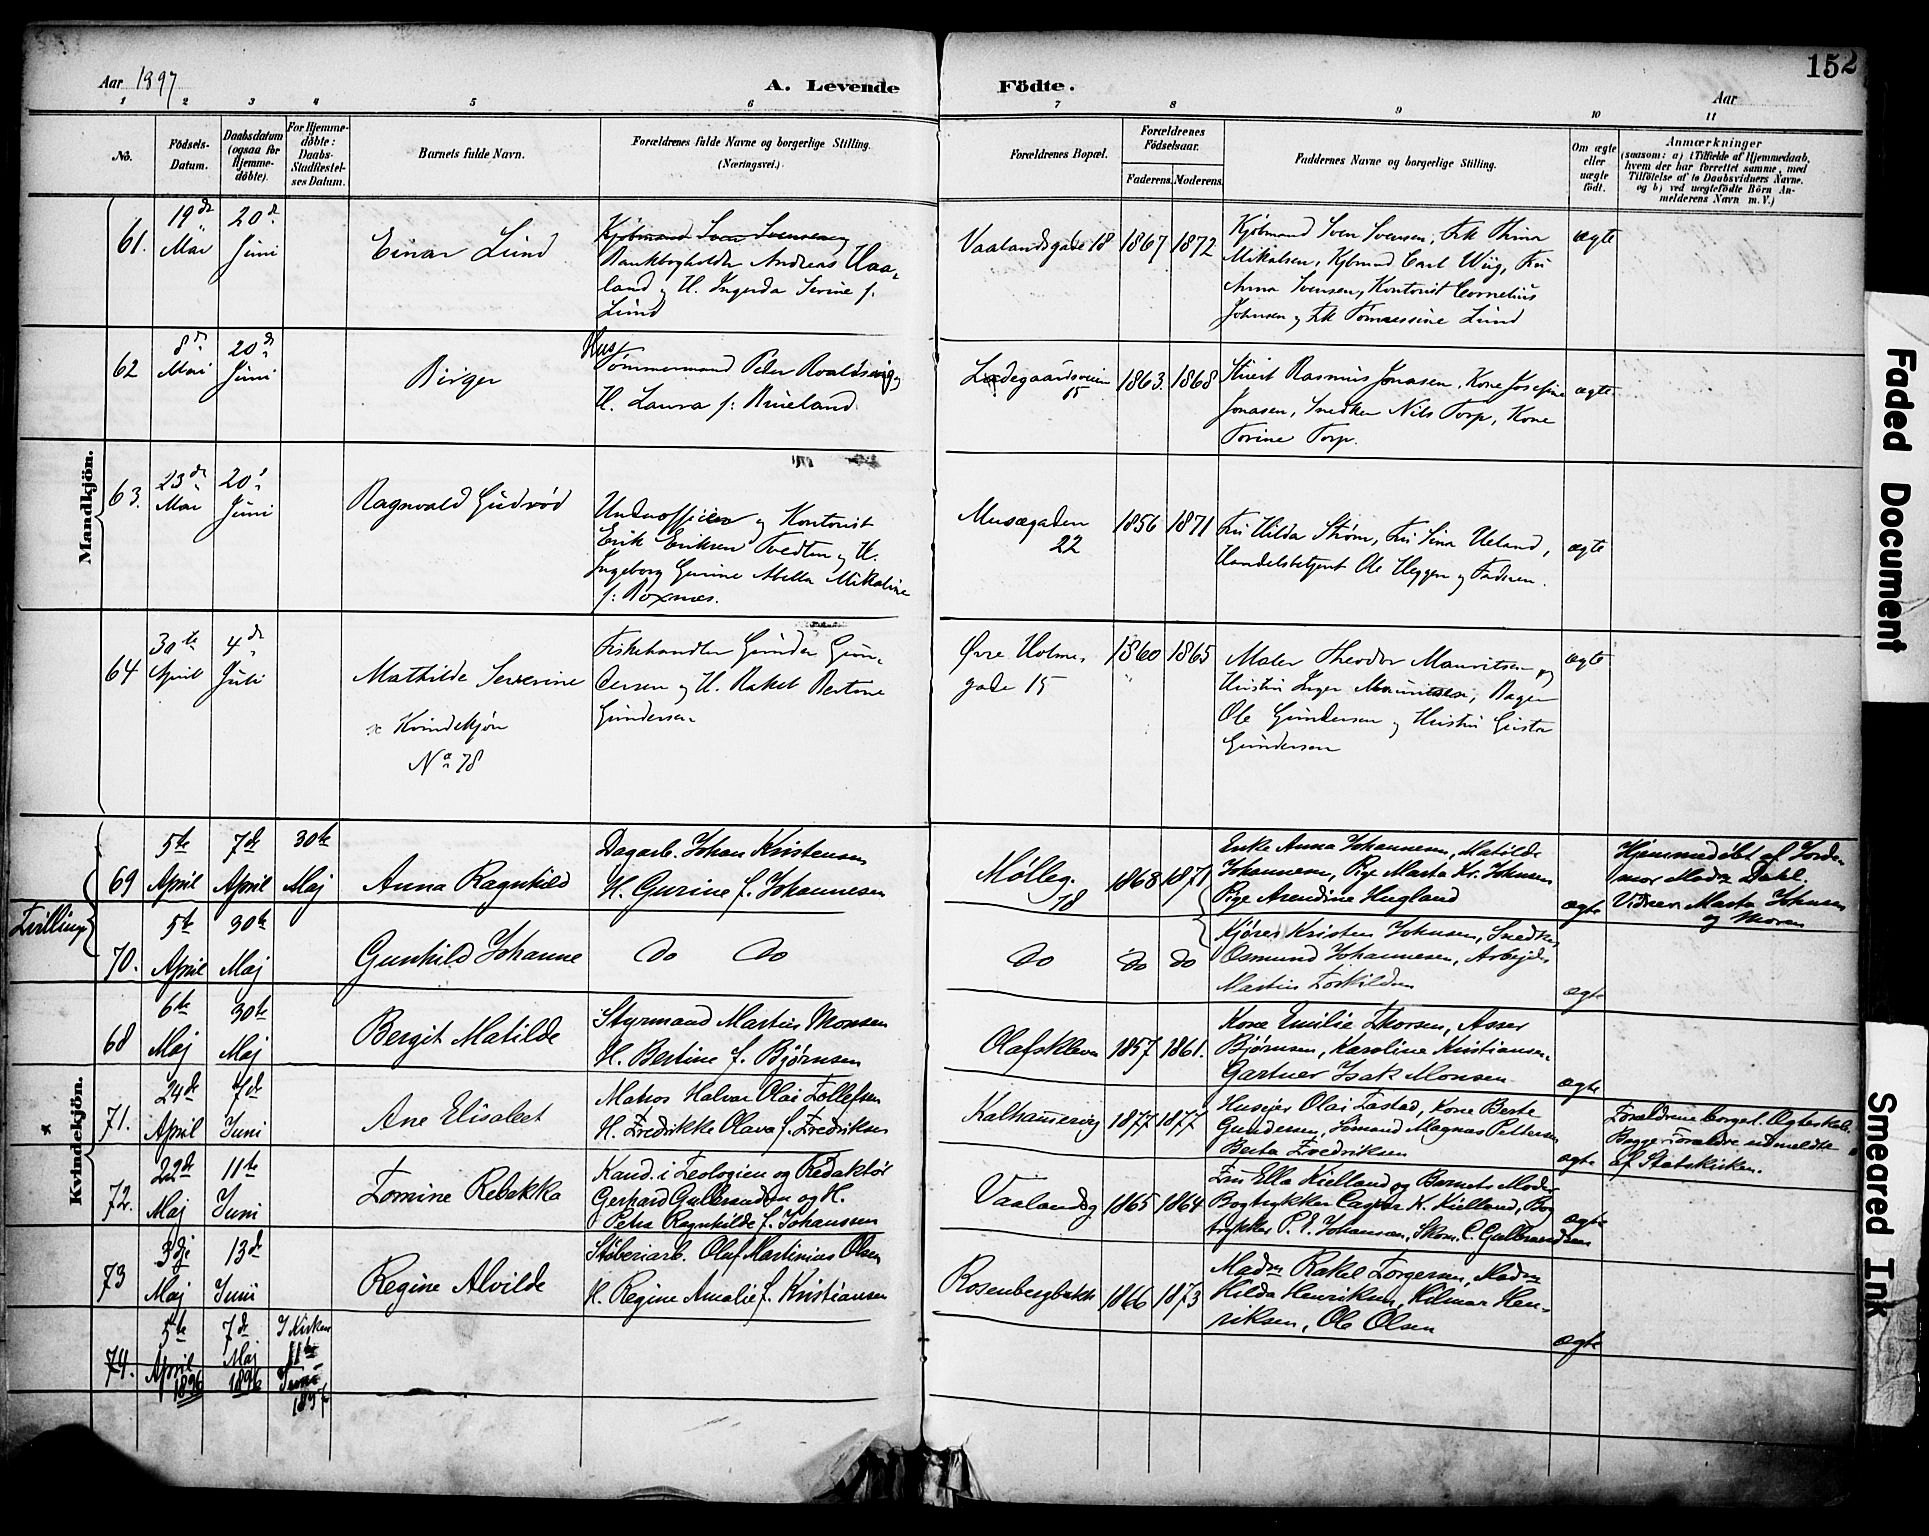 Aar 1897
A. Levende Födte.
Aar
152
1 2 3 4 5 6 7 8 9 10 11
No.
Födsels-Datum.
Daabsdatum (ogsaa for Hjemme-döbte).
For Hjemme-döbte: Daabs-Stadfæstel-ses Datum.
Barnets fulde Navn.
Forældrenes fulde Navne og borgerlige Stilling. (Næringsvei.)
Forældrenes Bopæl.
Forældrenes Födselsaar.
Faderens. Moderens.
Faddernes Navne og borgerlige Stilling.
Om ægte eller uægte födt.
Anmærkninger
(saasom: a) i Tilfælde af Hjemmedaab, hvem der har forrettet samme, med Tilföielse af to Daabsvidners Navne, og b) ved uægtefödte Börn An-melderens Navn m. V.)
Mandkjön.
61.
19de Mai
20de Juni
Einar Lund
Kjøbmand Sven Svensen og
Bankbogholder Andreas Haa-
land og H. Ingerda Serine f.
Lund
Vaalandsgade 18
1867 1872
Kjøbmand Sven Svensen, Frk Thina
Mikalsen, Kjbmnd Carl Wiig, Fru
Anna Svensen, Kontorist Cornelius
Johnsen og Frk Tomassine Lund
ægte
62
8de Mai
20de Juni
Birger
Hus
Tømmermand Peder Roaldsvig og
H. Laura f. Bueland.
Ladegaardsveien 15
1863. 1868
Stuert Rasmus Jonasen, Kone Josefine
Jonasen, Snedker Nils Torp, Kone
Torine Torp.
ægte
63.
23de Mai
20de Juni
Ragnvald Gudrød
Underofficer og Kontorist
Erik Eriksen Tvedten og H.
Ingeborg Gurine Abella Mikaline
f. Roxnes.
Musægaden
22
1856 1871
Fru Hilda Strøm, Fru Sina Ueland,
Handelsbetjent Ole Heggen og Faderen.
ægte
64
30te April
4de Juli
Mathilde Severine
x Kvindekjøn
No 78
Fiskehandler Gunder Gun-
dersen og H. Rakel Bertine
Gundersen
Øvre Holme-
gade 15
1860 1865
Maler Theodor Mauritsen og
Hustru Inger Mauritsen, Bager
Ole Gundersen og Hustru Gusta
Gundersen
ægte
Tvillinger
Kvindekjön.
69
5te April
7de April
30te Maj
Anna Ragnhild
Dagarb. Johan Kristensen
H. Gurine f. Johannesen
Mølleg.
18
1868 1871
Enke Anna Johannesen, Matilde
Johannesen, Pige Marta Kr. Johnsen
Pige Arendine Hugland
ægte
Hjemmedøbt af Jorde-
mor Madm Dahl.
Vidner: Marta Johnsen
og Moren
70.
5te April
30te Maj
Gunhild Johanne
Do Do
Do
Do Do
Kjører Kristen Johnsen, Snedker
Osmund Johannesen, Arbejds
Martin Torkildsen
ægte
68
6te Maj
30te Maj
Bergit Matilde
Styrmand Martin Monsen
H. Bertine f. Bjørnsen
Olafskleven
1857 1861.
Kone Emilie Thorsen, Asser
Bjørnsen, Karoline Kristiansen.
Gartner Isak Monsen
ægte
x 71.
24de April
7de Juni
Ane Elisabet
Matros Halvar Olai Tollefsen
H. Fredrikke Olava f. Fredriksen
Kalhammervig
1877 1877
Husejer Olai Tastad, Kone Berte
Gundersen, Sømand Magnus Pettersen
Berta Fredriksen
ægte
Forældrene borgerl. Ægteskab.
Begge Forældre udmeldte
af Statskirken.
72.
22de Maj
11te Juni
Tomine Rebekka
Kand. i Teologien og Redaktør
Gerhard Gulbrandsen og H.
Petra Ragnhilde f. Johanssen
Vaalandsg
1865 1864
Fru Ella Kielland og Barnets Moder
Bogtrykker Casper K. Kielland, Bog
trykker P. E. Johansen, Skom. C. Gulbrandsen
ægte
73
3dje Maj
13de Juni
Regine Alvilde
Støberiarb. Oluf Martinius Olsen
H. Regine Amalie f. Kristiansen
Rosenbergbakk
1866 1873
Madm Rakel Torgersen, Madm
Hilda Henriksen, Hilmar Hen-
riksen, Ole Olsen
ægte
74.
5te April 1896
7de Maj 1896
I Kirken 11te Juni 1897
Faded Document
Smeared Ink